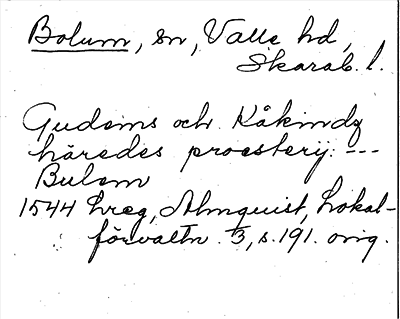 Bolum, sn, Valle hd,
Skarab. l.
Gudems och Kåkindz
häredes proesterij: ---
Bulem
1544 hreg, Almquist, Lokal-
förvaltn. 3, s. 191. orig.